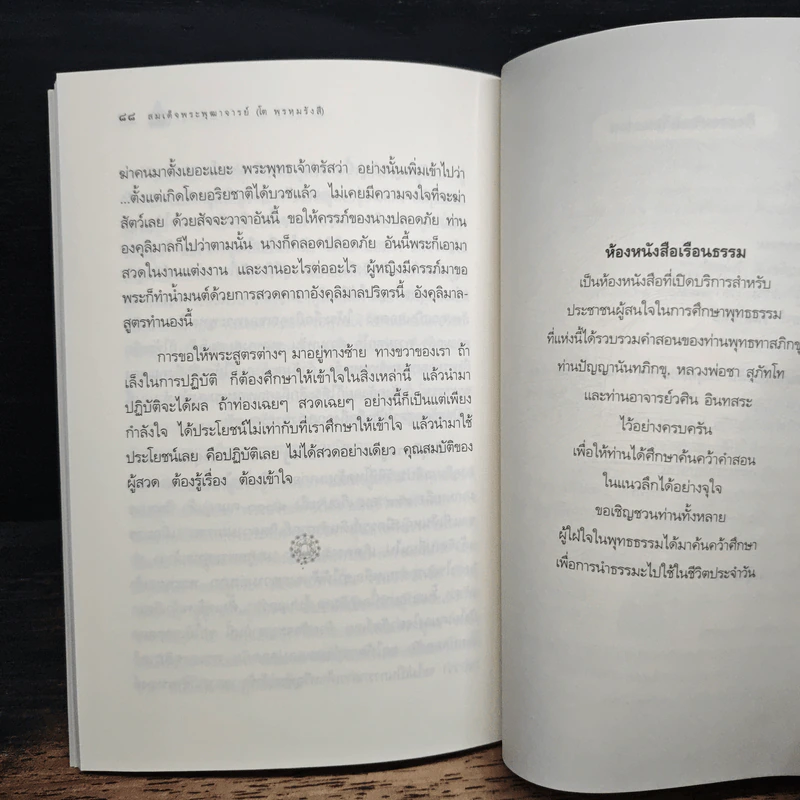 ๘๘ สมเด็จพระพุฒาจารย์ (โต พฺรหฺมรังสี)
ฆ่าคนมาตั้งเยอะแยะ พระพุทธเจ้าตรัสว่า อย่างนั้นเพิ่มเข้าไปว่า
...ตั้งแต่เกิดโดยอริยชาติได้บวชแล้ว ไม่เคยมีความจงใจที่จะฆ่า
สัตว์เลย ด้วยสัจจะวาจาอันนี้ ขอให้ครรภ์ของนางปลอดภัย ท่าน
องคุลิมาลก็ไปว่าตามนั้น นางก็คลอดปลอดภัย อันนี้พระก็เอามา
สวดในงานแต่งงาน และงานอะไรต่ออะไร ผู้หญิงมีครรภ์มาขอ
พระก็ทำน้ำมนต์ด้วยการสวดคาถาอังคุลิมาลปริตรนี้ อังคุลิมาล-
สูตรทำนองนี้
การขอให้พระสูตรต่างๆ มาอยู่ทางซ้าย ทางขวาของเรา ถ้า
เล็งในการปฏิบัติ ก็ต้องศึกษาให้เข้าใจในสิ่งเหล่านี้ แล้วนำมา
ปฏิบัติจะได้ผล ถ้าท่องเฉยๆ สวดเฉยๆ อย่างนี้ก็เป็นแต่เพียง
กำลังใจ ได้ประโยชน์ไม่เท่ากับที่เราศึกษาให้เข้าใจ แล้วนำมาใช้
ประโยชน์เลย คือปฏิบัติเลย ไม่ได้สวดอย่างเดียว คุณสมบัติของ
ผู้สวด ต้องรู้เรื่อง ต้องเข้าใจ
ห้องหนังสือเรือนธรรม
เป็นห้องหนังสือที่เปิดบริการสำหรับ
ประชาชนผู้สนใจในการศึกษาพุทธธรรม
ที่แห่งนี้ได้รวบรวมคำสอนของท่านพุทธทาสภิกขุ
ท่านปัญญานันทภิกขุ, หลวงพ่อชา สุภัทโท
และท่านอาจารย์วศิน อินทสระ
ไว้อย่างครบครัน
เพื่อให้ท่านได้ศึกษาค้นคว้าคำสอน
ในแนวลึกได้อย่างจุใจ
ขอเชิญชวนท่านทั้งหลาย
ผู้ใฝ่ใจในพุทธธรรมได้มาค้นคว้าศึกษา
เพื่อการนำธรรมะไปใช้ในชีวิตประจำวัน